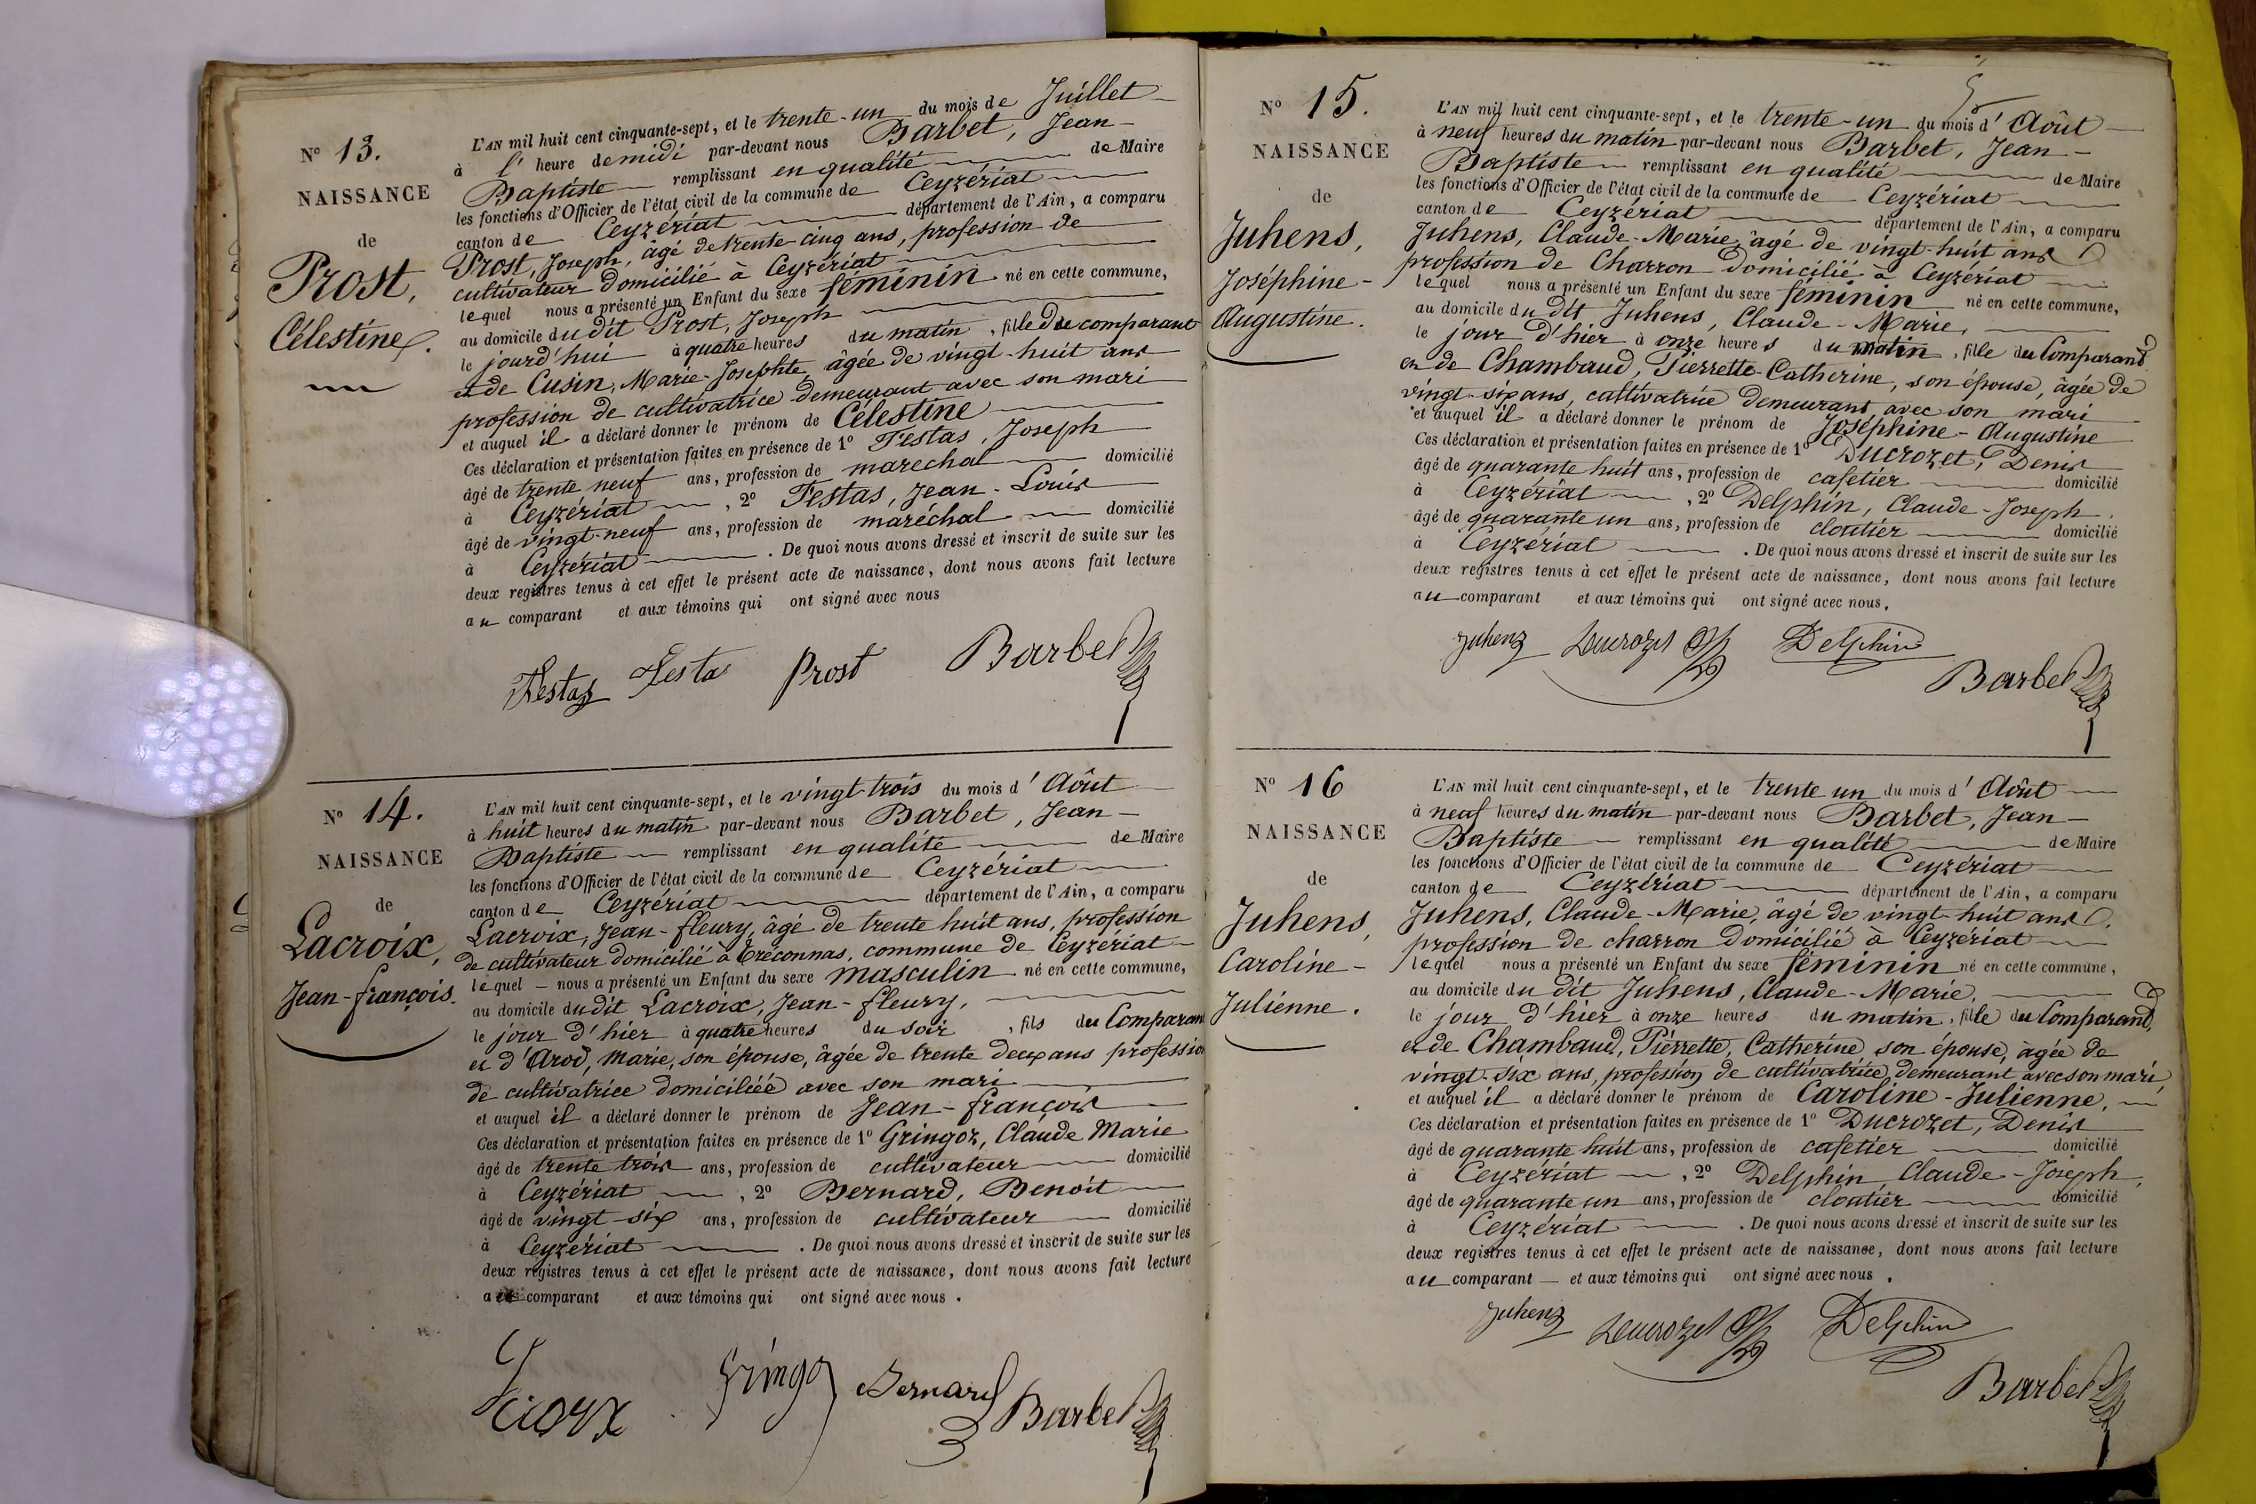 N° 13.
NAISSANCE
de
Prost,
Célestine.
L'AN mil huit cent cinquante-sept, et le trente-un du mois de Juillet
à l' heure de midi par-devant nous Barbet, Jean-
Baptiste remplissant en qualité de Maire
les fonctions d'Officier de l'état civil de la commune de Ceyzériat
canton de Ceyzériat département de l'Ain, a comparu
Prost, Joseph, âgé de trente cinq ans, profession de
cultivateur domicilié à Ceyzériat
lequel nous a présenté un Enfant du sexe féminin né en cette commune,
au domicile du dit Prost, Joseph
le jourd'hui à quatre heures du matin, fille du comparant
et de Cusin, Marie-Josephte, âgée de vingt-huit ans
profession de cultivatrice demeurant avec son mari
et auquel il a déclaré donner le prénom de Célestine
Ces déclaration et présentation faites en présence de 1° Festas, Joseph
âgé de trente neuf ans, profession de marechal domicilié
à Ceyzériat, 2° Festas, Jean-Louis
âgé de vingt-neuf ans, profession de maréchal domicilié
à Ceyzériat. De quoi nous avons dressé et inscrit de suite sur les
deux registres tenus à cet effet le présent acte de naissance, dont nous avons fait lecture
au comparant et aux témoins qui ont signé avec nous
Festas Festa Prost Barbet
N° 14.
NAISSANCE
de
Lacroix,
Jean-françois.
L'AN mil huit cent cinquante-sept, et le vingt-trois du mois d'Aôut
à huit heures du matin par-devant nous Barbet, Jean-
Baptiste remplissant en qualité de Maire
les fonctions d'Officier de l'état civil de la commune de Ceyzériat
canton de Ceyzériat département de l'Ain, a comparu
Lacroix, Jean-fleury, âgé de trente huit ans, profession
de cultivateur domicilié à Tréconnas, commune de Ceyzériat
lequel nous a présenté un Enfant du sexe masculin né en cette commune,
au domicile du dit Lacroix, Jean-fleury,
le jour d'hier à quatre heures du soir, fils du Comparant
et d'Arod, Marie, son épouse, âgée de trente deux ans profession
de cultivatrice domiciliée avec son mari
et auquel il a déclaré donner le prénom de Jean-françois
Ces déclaration et présentation faites en présence de 1° Gringoz, Claude Marie
âgé de trente trois ans, profession de cultivateur domicilié
à Ceyzériat, 2° Bernard, Benoit
âgé de vingt-six ans, profession de cultivateur domicilié
à Ceyzériat. De quoi nous avons dressé et inscrit de suite sur les
deux registres tenus à cet effet le présent acte de naissance, dont nous avons fait lecture
au comparant et aux témoins qui ont signé avec nous.
Gringoz Bernard Barbet
N° 15.
NAISSANCE
de
Juhens,
Joséphine-
Augustine.
L'AN mil huit cent cinquante-sept, et le trente-un du mois d'Aôut
à neuf heures du matin par-devant nous Barbet, Jean-
Baptiste remplissant en qualité de Maire
les fonctions d'Officier de l'état civil de la commune de Ceyzériat
canton de Ceyzériat département de l'Ain, a comparu
Juhens, Claude-Marie, âgé de vingt-huit ans
profession de Charron domicilié à Ceyzériat
lequel nous a présenté un Enfant du sexe féminin né en cette commune,
au domicile du dit Juhens, Claude-Marie,
le jour d'hier à onze heures du matin, fille du Comparant
et de Chambaud, Pierrette-Catherine, son épouse, âgée de
vingt-six ans, cultivatrice demeurant avec son mari
et auquel il a déclaré donner le prénom de Joséphine-Augustine
Ces déclaration et présentation faites en présence de 1° Ducrozet, Denis
âgé de quarante huit ans, profession de cafetier domicilié
à Ceyzériat, 2° Delphin, Claude-Joseph.
âgé de quarante un ans, profession de cloutier domicilié
à Ceyzériat. De quoi nous avons dressé et inscrit de suite sur les
deux registres tenus à cet effet le présent acte de naissance, dont nous avons fait lecture
au comparant et aux témoins qui ont signé avec nous.
Juhenz Ducrozet Delphin
Barbet
N° 16
NAISSANCE
de
Juhens,
Caroline-
Julienne.
L'AN mil huit cent cinquante-sept, et le trente un du mois d'Aôut
à neuf heures du matin par-devant nous Barbet, Jean-
Baptiste remplissant en qualité de Maire
les fonctions d'Officier de l'état civil de la commune de Ceyzériat
canton de Ceyzériat département de l'Ain, a comparu
Juhens, Claude-Marie, âgé de vingt-huit ans,
profession de charron domicilié à Ceyzériat
lequel nous a présenté un Enfant du sexe féminin né en cette commune,
au domicile du dit Juhens, Claude-Marie,
le jour d'hier à onze heures du matin, fille du Comparant,
et de Chambaud, Pierrette, Catherine, son épouse, âgée de
vingt-six ans, profession de cultivatrice, demeurant avec son mari,
et auquel il a déclaré donner le prénom de Caroline-Julienne,
Ces déclaration et présentation faites en présence de 1° Ducrozet, Denis
âgé de quarante huit ans, profession de cafetier domicilié
à Ceyzériat, 2° Delphin, Claude-Joseph,
âgé de quarante un ans, profession de cloutier domicilié
à Ceyzériat. De quoi nous avons dressé et inscrit de suite sur les
deux registres tenus à cet effet le présent acte de naissance, dont nous avons fait lecture
au comparant et aux témoins qui ont signé avec nous.
Juhenz Ducrozet Delphin
Barbet